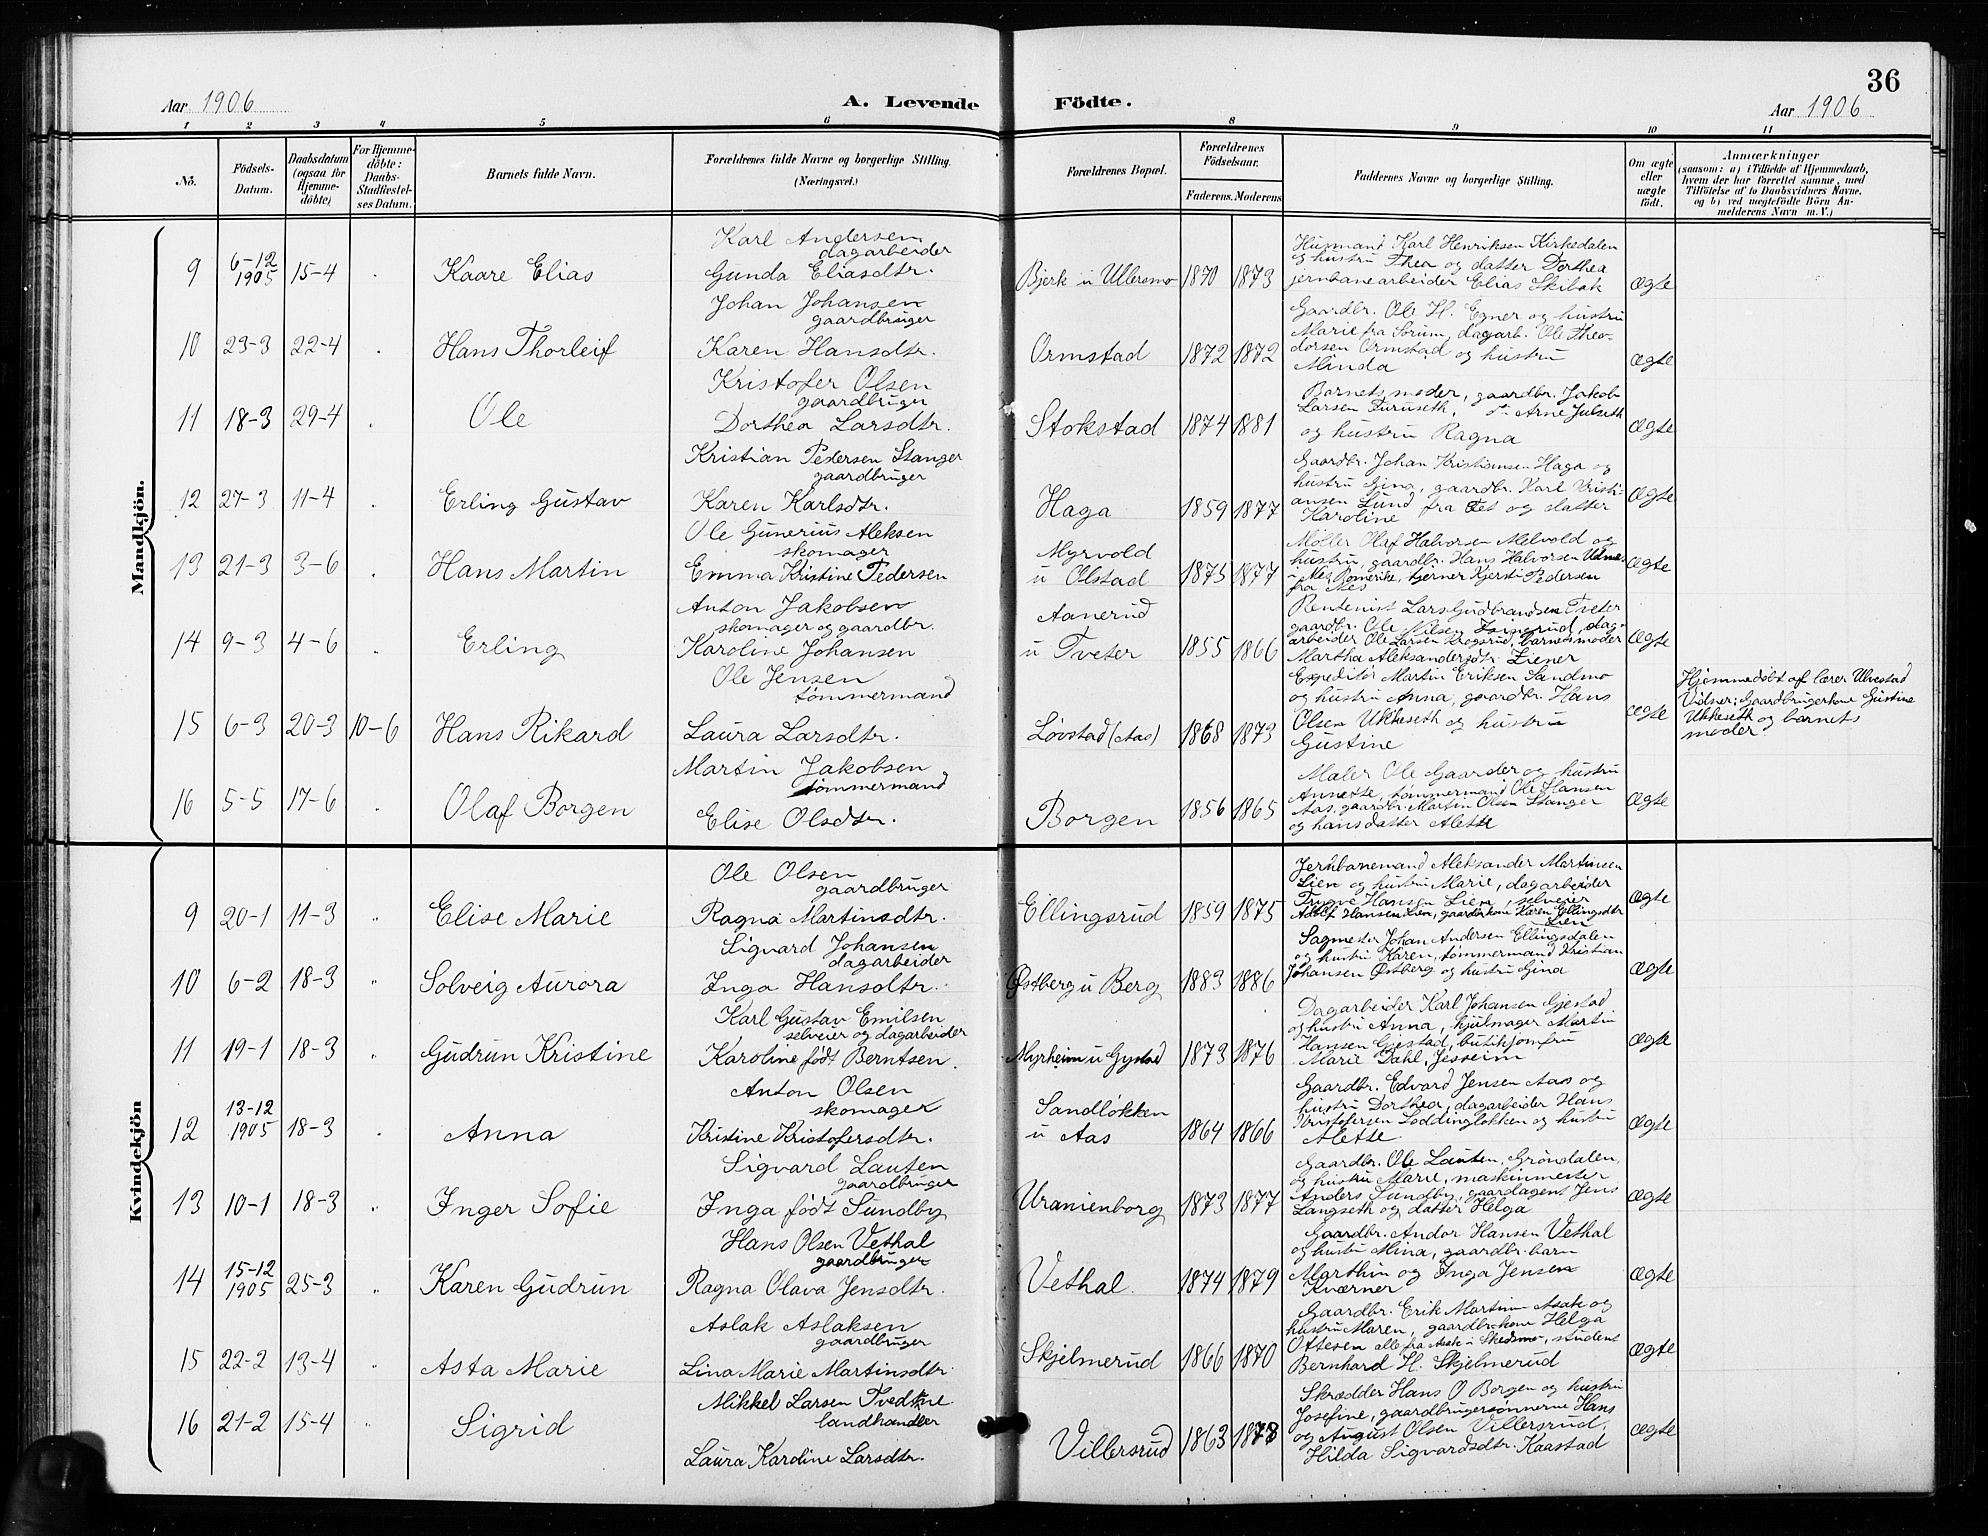 36
Aar 1906
A. Levende
Födte.
Aar 1906
1 2 3 4 5 6 8 9 10 11
No.
Födsels-
Datum.
Daabsdatum
(ogsaa for
Hjemme-
döbte)
For Hjemme-
döbte:
Daabs-
Stadfæstel-
ses Datum.
Barnets fulde Navn.
Forældrenes fulde Navne og borgerlige Stilling.
(Næringsvei.)
Forældrenes Bopæl.
Forældrenes
Födselsaar.
Faderens. Moderens
Faddernes Navne og borgerlige Stilling.
Om ægte
eller
uægte
födt.
Anmærkninger
(saasom: a) i Tilfælde af Hjemmedaab,
hvem der har forrettet samme, med
Tilföielse af to Daabsvidners Navne,
og b) ved uægtefödte Börn An-
melderens Navn m. V.)
Mandkjön.
9 6-12 1905 15-4 Kaare Elias
Karl Andersen
dagarbeider
Gunda Eliasdtr.
Bjerk u Ullersmo 1870 1873
Husmand Karl Henriksen Kirkedalen
og hustru Thea og datter Dorthea
jernbanearbeider Elias Skibak
Ægte
10 23-3 22-4 Hans Thorleif
Johan Johansen
gaardbruger
Karen Hansdtr.
Ormstad 1872 1872
Gaardbr. Ole H. Egner og hustru
Marie fra Sørum, dagarb. Ole Theo-
dorsen Ormstad og hustru
Minda
Ægte
11 18-3 29-4 Ole
Kristofer Olsen
gaardbruger
Dorthea Larsdtr.
Stokstad 1874 1881
Barnets moder, gaardbr. Jakob
Larsen Furuseth, do Arne Julseth
og hustru Ragna
Ægte
12 27-3 11-4 Erling Gustav
Kristian Pedersen Stanger
gaardbruger
Karen Karlsdtr.
Haga 1859 1877
Gaardbr. Johan Kristiansen Haga og
hustru Gina, gaardbr. Karl Kristi-
ansen Lund fra Fet og datter
Karoline
Ægte
13 21-3 3-6 Hans Martin
Ole Gunerius Aleksen
skomager
Emma Kristine Pedersen
Myrvold
u Olstad 1875 1877
Møller Olaf Halvorsen Melvold og
hustru, gaardbr. Hans Halvorsen Udnæs
i Nes Romerike, tjerner Kjersti Pedersen
fra Nes
Ægte
14 9-3 4-6 Erling
Anton Jakobsen
skomager og gaardbr.
Karoline Johansen
Aanerud
u Tveter 1855 1866
Rentenist Lars Gudbrandsen Tveter
gaardbr. Ole Nilsen, dag-
arbeider Ole Larsen Krogsrud, barnets moder
Martha Aleksandersdtr. Ziener
Ægte
15 6-3 20-3 10-6 Hans Rikard
Ole Jensen
tømmermand
Laura Larsdtr.
Løvstad (Aas) 1868 1873
Expeditør Martin Eriksen Sandmo
og hustru Anna, gaardbr. Hans
Olsen Ukkeseth og hustru
Gustine
Ægte
Hjemmedøbt af lærer Ulvestad
Vidner: Gaardbrugerkone Gustine
Ukkeseth og barnets
moder
16 5-5 17-6 Olaf Borgen
Martin Jakobsen
tømmermand
Elise Olsdtr.
Borgen 1856 1865
Maler Ole Gaarder og hustru
Annette, tømmermand Ole Hansen
Aas, gaardbr. Martin Olsen Stanger
og hans datter Alette
Ægte
Kvindekjön
9 20-1 11-3 Elise Marie
Ole Olsen
gaardbruger
Ragna Martinsdtr.
Ellingsrud 1859 1875
Jernbanemand Aleksander Martinsen
Lien og hustru Marie, dagarbeider
Trygve Hansen Lien, selveier
Adolf Hansen Lien, gaardbrkone Karen Ellingsdtr
Lien
Ægte
10 6-2 18-3 Solveig Aurora
Sigvard Johansen
dagarbeider
Inga Hansdtr.
Østberg u Berg 1883 1886
Sagmester Johan Andersen Ellingsdalen
og hustru Karen, tømmermand Kristian
Johansen Østberg og hustru Gina
Ægte
11 19-1 18-3 Gudrun Kristine
Karl Gustav Emilsen
selveier og dagarbeider
Karoline født Berntsen.
Myrheim u Gystad 1873 1876
Dagarbeider Karl Johansen Gjestad
og hustru Anna, hjulmager Martin
Hansen Gjestad, butikjomfru
Marie Dahl, Jesseim
Ægte
12 13-12 1905 18-3 Anna
Anton Olsen
skomager
Kristine Kristofersdtr.
Sandløkken
u Aas 1864 1866
Gaardbr. Edvard Jensen Aas og
hustru Dorthea, dagarbeider Hans
Kristofersen Loddingløkken og hustru
Alette
Ægte
13 10-1 18-3 Inger Sofie
Sigvard Lauten
gaardbruger
Inga født Sundby
Uranienborg 1873 1877
Gaardbr. Ole Lauten, Grøndalen,
og hustru Marie, maskinmester
Anders Sundby, gaardagent Jens
Langseth og datter Helga
Ægte
14 15-12 1905 25-3 Karen Gudrun
Hans Olsen Vethal
gaardbruger
Ragna Olava Jensdtr.
Vethal 1874 1879
Gaardbr. Andor Hansen Vethal
og hustru Mina, gaardbr. barn
Marthin og Inga Jensen
Kværner
Ægte
15 22-2 13-4 Asta Marie
Aslak Aslaksen
gaardbruger
Lina Marie Martinsdtr.
Skjelmerud 1866 1870
Gaardbr. Erik Martin Asak og
hustru Maren, gaardbr.kone Helga
Ottesen alle fra Asak i Skedsmo, student
Bernhard H. Skjelmerud
Ægte
16 21-2 15-4 Sigrid
Mikkel Larsen Tvedtne
landhandler
Laura Karoline Larsdtr.
Villersrud 1863 1878
Skrædder Hans O Borgen og hustru
Josefine, gaardbrugersønnerne Hans
og August Olsen Villersrud,
Hilda Sigvardsdtr. Kaastad
Ægte